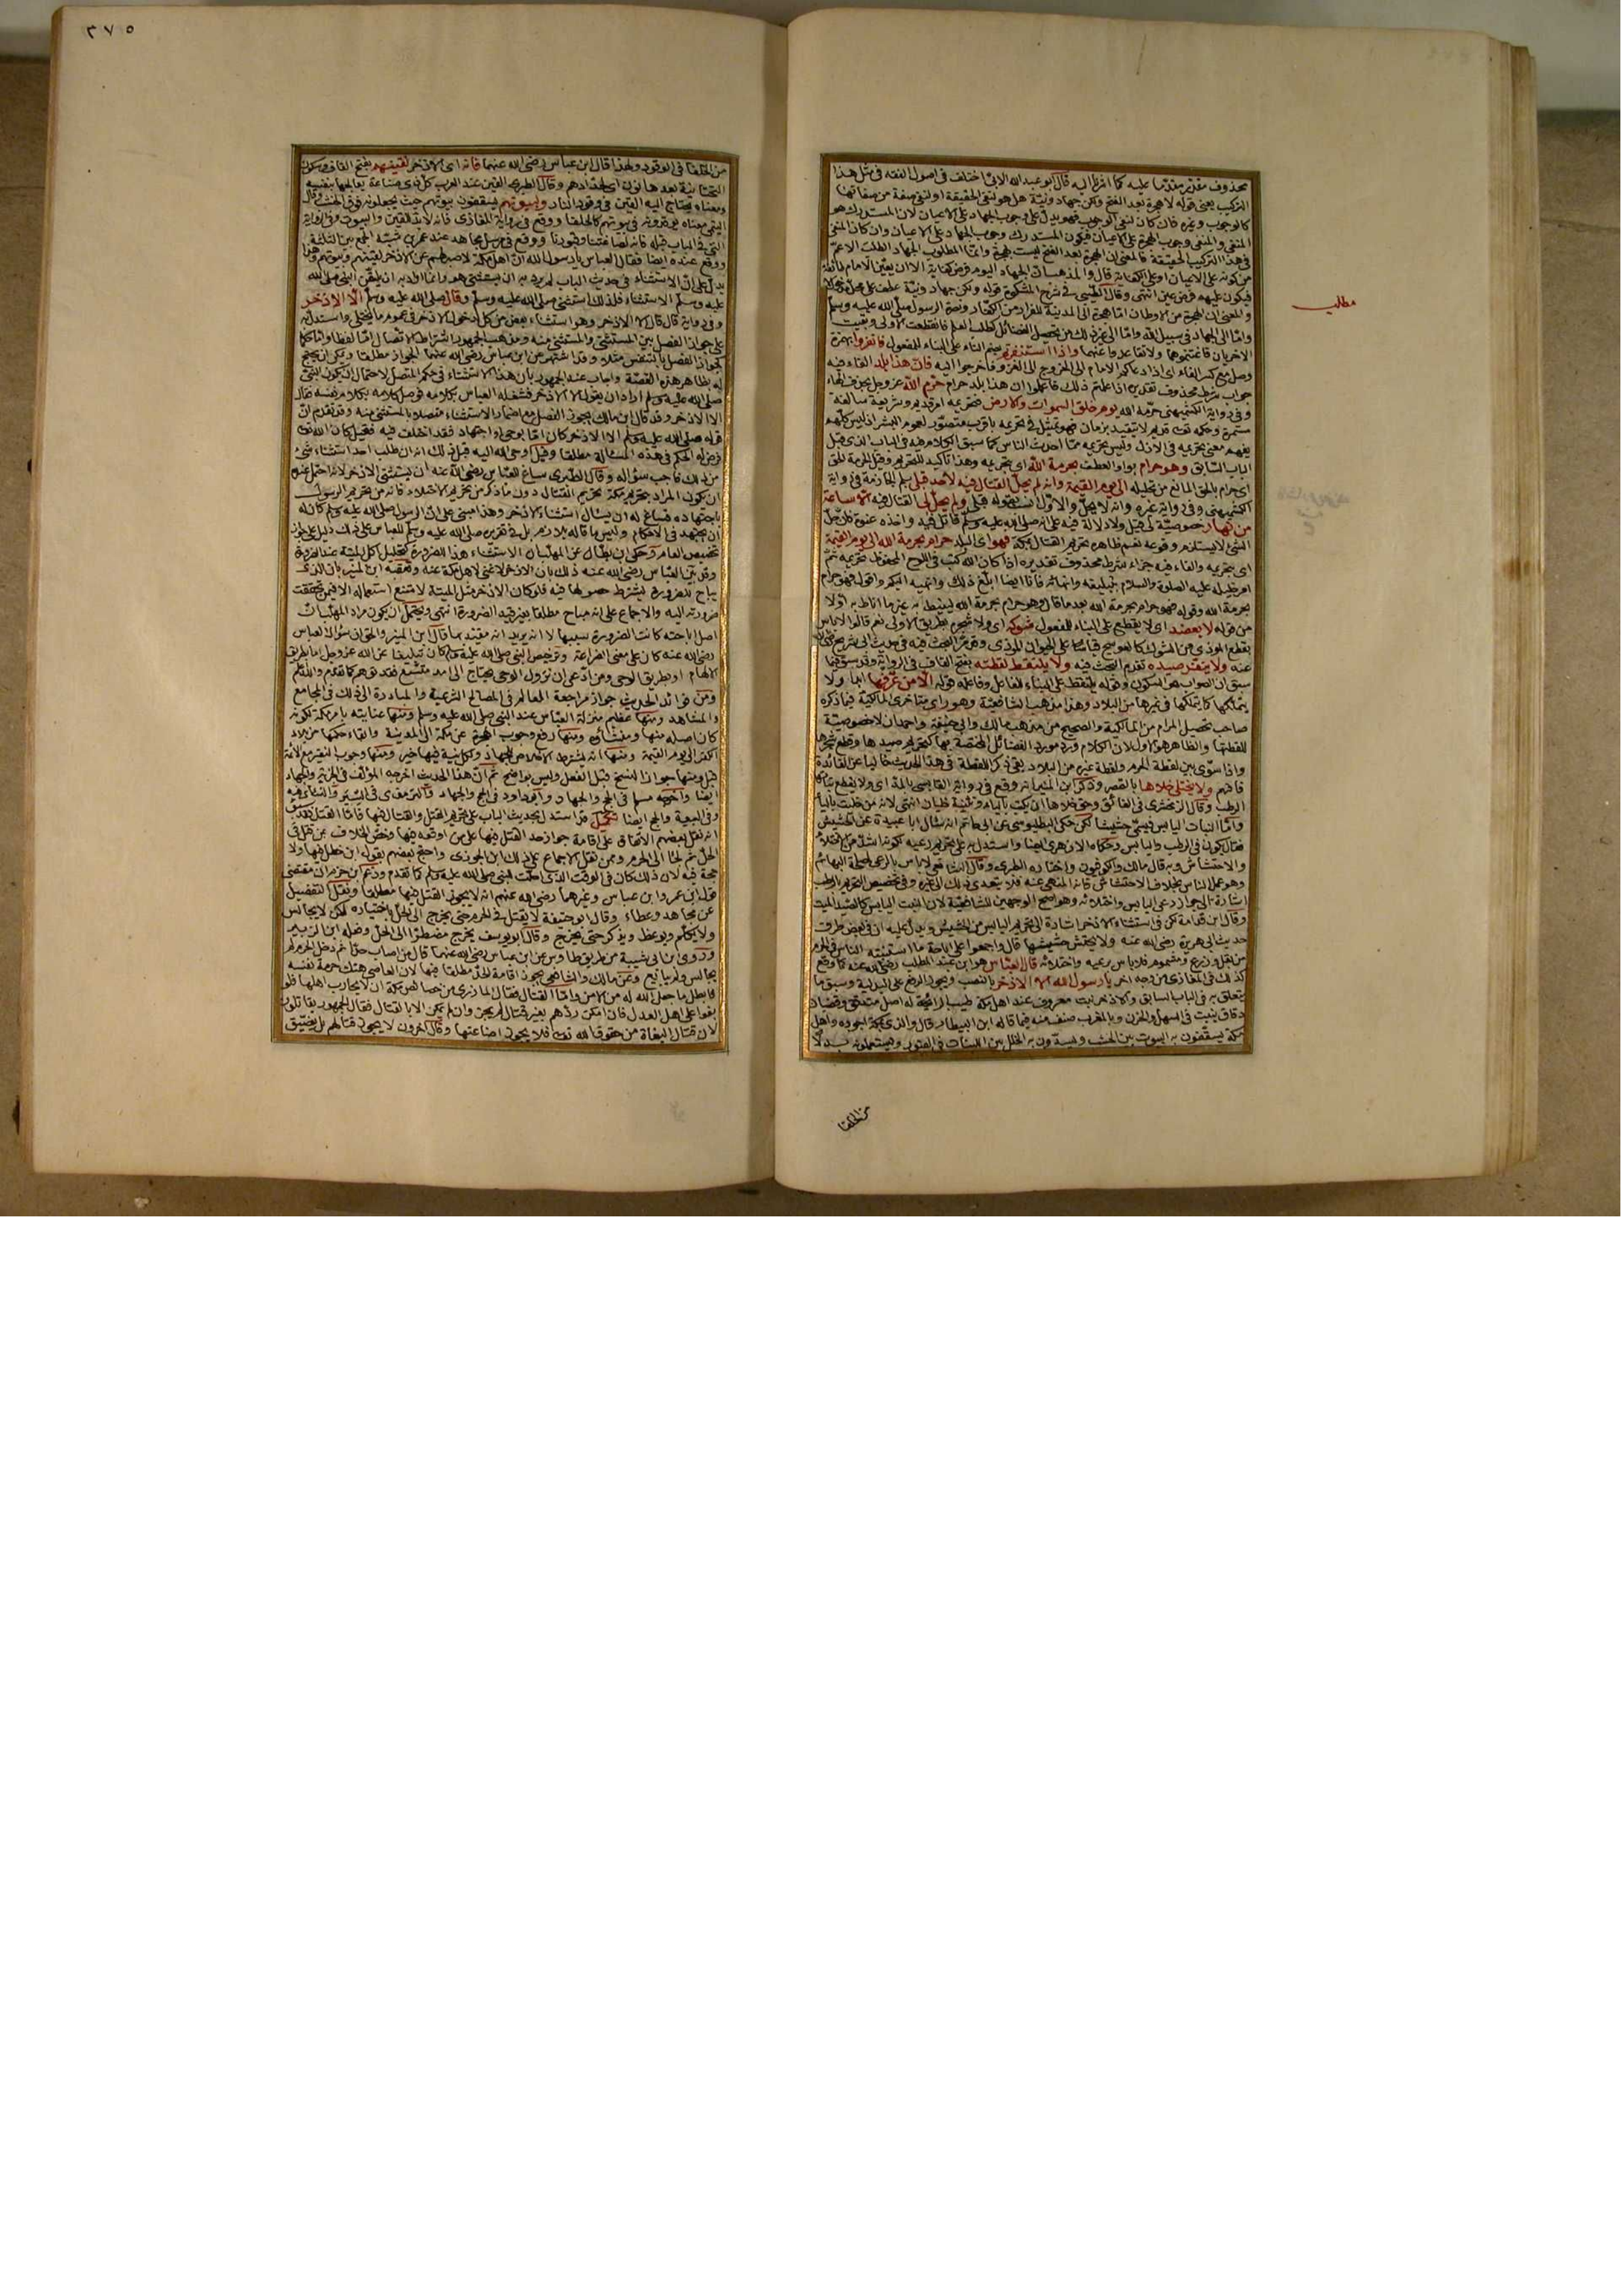 محذوف مقدر مقدما عليه كما اشرنا اليه قال ابو عبد الله الابي اختلف في اصول الفقه في مثل هذا
التركيب يعني قوله لا هجرة بعد الفتح ولكن جهاد ونية هل هو لنفي الحقيقة او لنفي صفة من صفاتها
كالوجوب وغيره فان كان لنفي الوجوب فهو يدل على وجوب الجهاد على الاعيان لان المستدرك هو
المنفي والمنفي وجوب الهجرة على الاعيان فيكون المستدرك وجوب الجهاد على الاعيان وان كان المنفي
في هذا التركيب الحقيقة فالمعنى ان الهجرة بعد الفتح ليست بهجرة وانما المطلوب الجهاد الطلب الاعم
من كونه على الاعيان او على الكفاية قال والمذهب ان الجهاد اليوم فرض كفاية الا ان يعين الامام طائفة
فيكون عليهم فرض عين انتهى وقال الطيبي في شرح المشكوة قوله ولكن جهاد ونية عطف على محل
والمعنى ان الهجرة من الاوطان اما هجرة الى المدينة للفرار من الكفار ونصرة الرسول صلى الله عليه وسلم
واما الى الجهاد في سبيل الله واما الى غير ذلك من تحصيل الفضائل كطلب العلم فانقطعت الاولى وبقيت
الاخريان فاغتنموها ولا تقاعدوا عنهما واذا استنفرتم بضم التاء على البناء للمفعول فانفروا بهمزة
وصل مع كسر الفاء اى اذا دعاكم الامام الى الخروج الى الغزو فاخرجوا اليه فان هذا بلد الفاء فيه
جواب شرط محذوف تقديره اذا علمتم ذلك فاعلموا ان هذا بلد حرام حرم الله عز وجل بحذف الهاء
وفي رواية الكشميهني حرمه الله يوم خلق السموات والارض فتحريمه امر قديم وشريعة سالفة
مستمرة وحكمه تعالى قديم لا يتقيد بزمان فهو تمثيل في تحريمه باقرب متصور لعموم البشر اذ ليس كلهم
يفهم معنى تحريمه في الازل وليس تحريمه مما احدث الناس كما سبق الكلام فيه في الباب الذي قبل
الباب السابق وهو حرام بواو العطف بحرمة الله اى بتحريمه وهذا تاكيد للتحريم وقيل الحرمة الحق
اى حرام بالحق المانع من تحليله الى يوم القيمة وانه لم يحل القتال فيه لاحد قبلي بلم الجازمة في رواية
الكشميهني وفي رواية غيره وانه لا يحل والاول انسب لقوله قبلي ولم يحل لي القتال فيه الا ساعة
من نهار خصوصية لي قبل ولا دلالة فيه على انه صلى الله عليه وسلم قاتل فيه واخذه عنوة فان حل
الشئ لا يستلزم وقوعه نعم ظاهره تحريم القتال بمكة فهو اى البلد حرام بحرمة الله الى يوم القيمة
اى بتحريمه والفاء فيه جزاء شرط محذوف تقديره اذا كان الله كتب في اللوح المحفوظ تحريمه ثم
امر خليله عليه الصلوة والسلام بتبليغه وانهائه فانا ايضا ابلغ ذلك وانهيه اليكم واقول فهو حرام
بحرمة الله وقوله فهو حرام بحرمة الله بعد ما قال وهو حرام بحرمة الله لينيط به غير ما اناط به اولا
من قوله لا يعضد اى لا يقطع على البناء للمفعول شوكه اى ولا شجره بطريق الاولى نعم قالوا لا باس
بقطع الموذي من الشوك كالعوسج قياسا على الحيوان الموذي وقد مر البحث فيه في حديث ابي شريح رضي الله
عنه ولا ينفر صيده تقدم البحث فيه ولا يلتقط لقطته بفتح القاف في الرواية وقد سبق فيما
سبق ان الصواب هو السكون وقوله يلتقط على البناء للفاعل وفاعله قوله الا من عرفها ابدا ولا
يتملكها كما يتملكها في غيرها من البلاد وهذا مذهب الشافعية وهو راى متاخرى المالكية فيما ذكره
صاحب تحصيل المرام من المالكية والصحيح من مذهب مالك وابي حنيفة واحمد ان لا خصوصية
للقطتها والظاهر هو الاول لان الكلام ورد مورد الفضائل المختصة بها كتحريم صيدها وقطع شجرها
واذا سوى بين لقطة الحرم ولقطة غيره من البلاد بقي ذكر اللقطة في هذا الحديث خاليا عن الفائدة
فافهم ولا يختلى خلاها بالقصر وذكر ابن التين انه وقع في رواية القابسي بالمد اى ولا يقطع نباتها
الرطب وقال الزمخشري في الفائق وحق خلاها ان يكتب بالياء وتثنيته خليان انتهى لانه من خليت بالياء
واما النبات اليابس فيسمى حشيشا لكن حكى البطليوسي عن ابي حاتم انه سال ابا عبيدة عن الحشيش
فقال يكون في الرطب واليابس وحكاه الازهري ايضا واستدل به على تحريم رعيه لكونه اشد من الاختلاء
والاحتشاش وبه قال مالك والكوفيون واختاره الطبري وقال الشافعي لا باس بالرعي لمصلحة البهائم
وهو عمل الناس بخلاف الاحتشاش فانه المنهي عنه فلا يتعدى ذلك الى غيره وفي تخصيص التحريم بالرطب
اشارة الى جواز رعي اليابس واختلائه وهو اصح الوجهين للشافعية لان النبت اليابس كالصيد الميت
وقال ابن قدامة لكن في استثناء الاذخر اشارة الى تحريم اليابس من الحشيش ويدل عليه ان في بعض طرق
حديث ابي هريرة رضي الله عنه ولا يحتش حشيشها قال واجمعوا على اباحة ما استنبته الناس في الحرم
من بقل وزرع ومشموم فلا باس برعيه واختلائه قال العباس هو ابن عبد المطلب رضي الله عنه كما وقع
كذلك في المغازي من وجه اخر يا رسول الله الا الاذخر بالنصب ويجوز الرفع على البدلية وسبق ما
يتعلق به في الباب السابق والاذخر نبت معروف عند اهل مكة طيب الرائحة له اصل مندفن وقضبان
دقاق ينبت في السهل والحزن وبالمغرب صنف منه فيما قاله ابن البيطار قال والذي بمكة اجوده واهل
مكة يسقفون به البيوت بين الخشب ويسدون به الخلل بين اللبنات في القبور ويستعملونه بدلا
من الحلفا
مطلب
٣٧٥
من الحلفا في الوقود ولهذا قال ابن عباس رضي الله عنهما فانه اى الاذخر لقينهم بفتح القاف وسكون
التحتانية بعدها نون اى لحدادهم وقال الطبري القين عند العرب كل ذي صناعة يعالجها بنفسه
ومعناه يحتاج اليه القين في وقود النار ولبيوتهم يسقفون بيوتهم حيث يجعلونه فوق الخشب وقال
التيمي معناه يوقدونه في بيوتهم كالحلفا ووقع في رواية المغازي فانه لا بد للقين والبيوت وفي الرواية
التي في الباب قبله فانه لصاغتنا وقبورنا ووقع في مرسل مجاهد عند عمر بن شبة الجمع بين الثلاثة
ووقع عنده ايضا فقال العباس يا رسول الله ان اهل مكة لا صبر لهم عن الاذخر لقينهم وبيوتهم وهذا
يدل على ان الاستثناء في حديث الباب لم يرد به ان يستثني هو وانما اراد به ان يلقن النبي صلى الله
عليه وسلم الاستثناء فلذلك استثنى صلى الله عليه وسلم وقال صلى الله عليه وسلم الا الاذخر
وفي رواية قال قال الا الاذخر وهو استثناء بعض من كل لدخول الاذخر في عموم ما يختلى واستدل به
على جواز الفصل بين المستثنى والمستثنى منه ومذهب الجمهور اشتراط الاتصال اما لفظا واما حكما
لجواز الفصل بالتنفس مثلا وقد اشتهر عن ابن عباس رضي الله عنهما الجواز مطلقا ويمكن ان يحتج
له بظاهر هذه القصة واجاب عنه الجمهور بان هذا الاستثناء في حكم المتصل لاحتمال ان يكون النبي
صلى الله عليه وسلم اراد ان يقول الا الاذخر فشغله العباس بكلامه فوصل كلامه بكلام نفسه فقال
الا الاذخر وقد قال ابن مالك يجوز الفصل مع اضمار الاستثناء متصلا بالمستثنى منه وقد تقدم ان
قوله صلى الله عليه وسلم الا الاذخر كان اما بوحى او اجتهاد فقد اختلف فيه فقيل كان الله تعالى
فوض له الحكم في هذه المسئلة مطلقا وقيل اوحى الله اليه قبل ذلك انه ان طلب احد استثناء شئ
من ذلك فاجب سؤاله وقال الطبري ساغ للعباس رضي الله عنه ان يستثني الاذخر لانه احتمل عنده
ان يكون المراد بتحريم مكة تحريم القتال دون ما ذكر من تحريم الاختلاء فانه من تحريم الرسول
باجتهاده فساغ له ان يسال استثناء الاذخر وهذا مبني على ان الرسول صلى الله عليه وسلم كان له
ان يجتهد في الاحكام وليس ما قاله بلازم بل في تقريره صلى الله عليه وسلم للعباس على ذلك دليل على جواز
تخصيص العام وحكى ابن بطال عن المهلب ان الاستثناء هنا للضرورة كتحليل اكل الميتة عند الضرورة
وقد بين العباس رضي الله عنه ذلك بان الاذخر لا غنى لاهل مكة عنه وتعقبه ابن المنير بان الذي
يباح للضرورة يشترط حصولها فيه فلو كان الاذخر مثل الميتة لامتنع استعماله الا فيمن تحققت
ضرورته اليه والاجماع على انه مباح مطلقا بغير قيد الضرورة انتهى ويحتمل ان يكون مراد المهلب ان
اصل اباحته كانت للضرورة بسببها لا انه يريد انه مقيد بها قال ابن المنير والحق ان سؤال العباس
رضي الله عنه كان على معنى الضراعة وترخيص النبي صلى الله عليه وسلم كان تبليغا عن الله عز وجل اما بطريق
الالهام او بطريق الوحى ومن ادعى ان نزول الوحى يحتاج الى امد متسع فقد توهم كما تقدم والله اعلم
ومن فوائد الحديث جواز مراجعة العالم في المصالح الشرعية والمبادرة الى ذلك في المجامع
والمشاهد ومنها عظيم منزلة العباس عند النبي صلى الله عليه وسلم ومنها عنايته بامر مكة لكونه
كان اصله منها ومنشاؤه ومنها رفع وجوب الهجرة عن مكة الى المدينة وابقاء حكمها من بلاد
الكفر الى يوم القيمة ومنها انه يشترط الاخلاص للجهاد ولكل نية فيها خير ومنها وجوب النفير مع الائمة
قيل ومنها جواز النسخ قبل الفعل وليس بواضح ثم ان هذا الحديث اخرجه المؤلف في الجزية والجهاد
ايضا واخرجه مسلم في الحج والجهاد وابو داود في الحج والجهاد والترمذي في السير والنسائي فيه
وفي البيعة والحج ايضا تكميل قد استدل بحديث الباب على تحريم القتل والقتال فيها فاما القتل فقد سبق
انه نقل بعضهم الاتفاق على اقامة جواز حد القتل فيها على من اوقعه فيها وخص الخلاف بمن قتل في
الحل ثم لجا الى الحرم وممن نقل الاجماع على ذلك ابن الجوزي واحتج بعضهم بقوله ابن خطل فيها ولا
حجة فيه لان ذلك كان في الوقت الذي احلت للنبي صلى الله عليه وسلم كما تقدم وزعم ابن حزم ان مقتضى
قول ابن عمر وابن عباس وغيرهما رضي الله عنهم انه لا يجوز القتل فيها مطلقا ونقل التفضيل
عن مجاهد وعطاء وقال ابو حنيفة لا يقتل في الحرم حتى يخرج الى الحل باختياره لكن لا يجالس
ولا يكلم ويوعظ ويذكر حتى يخرج وقال ابو يوسف يخرج مضطرا الى الحل وفعله ابن الزبير
وروى ابن ابي شيبة من طريق طاوس عن ابن عباس رضي الله عنهما قال من اصاب حدا ثم دخل الحرم لم
يجالس ولم يبايع وعن مالك والشافعي يجوز اقامة الحد مطلقا فيها لان العاصي هتك حرمة نفسه
فابطل ما جعل الله له من الامن واما القتال فقال الماوردي من خصائص مكة ان لا يحارب اهلها فلو
بغوا على اهل العدل فان امكن ردهم بغير قتال لم يجز وان لم يمكن الا بالقتال فقال الجمهور يقاتلون
لان قتال البغاة من حقوق الله تعالى فلا يجوز اضاعتها وقال اخرون لا يجوز قتالهم بل يضيق